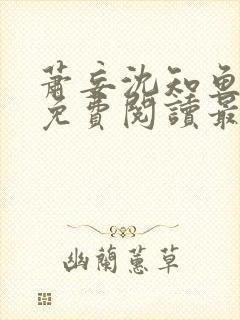 蕭妄沈知魚
免費閱讀最
幽蘭蕙草